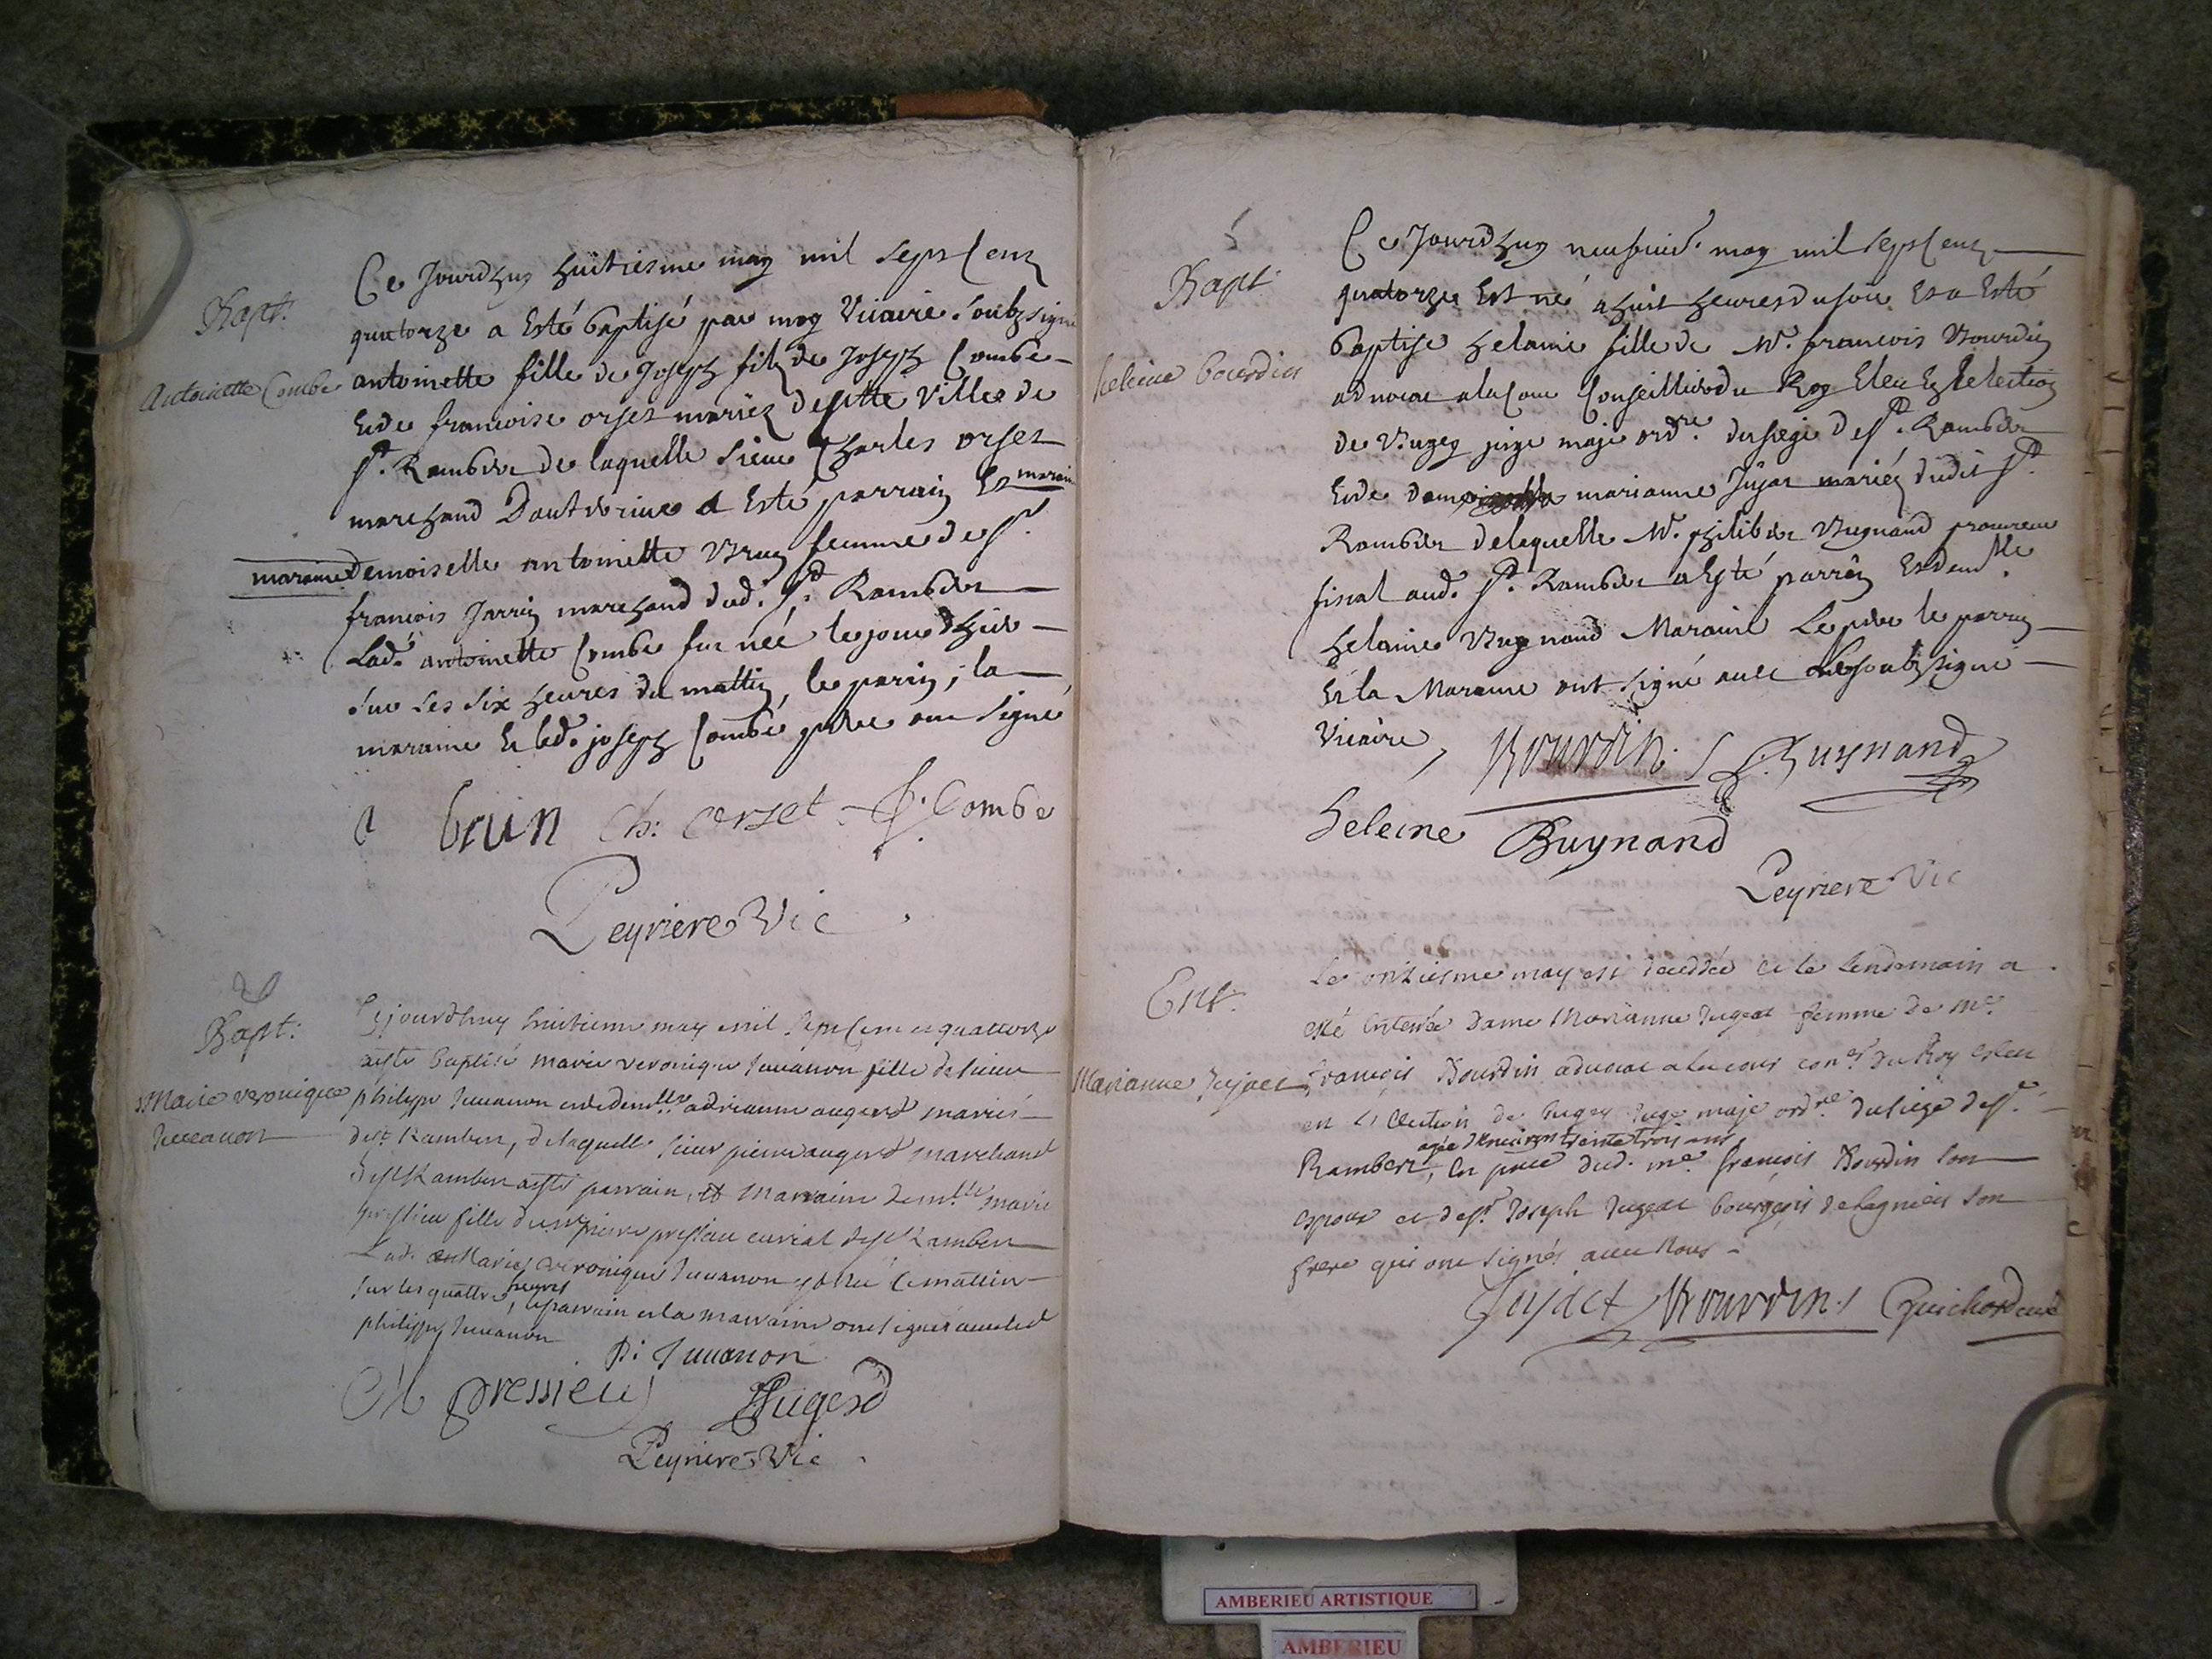 Bapt.
Antoinette Combe
Ce Jourdhuy huitiesme may mil sept cent
quatorze a Esté baptisé par moy Vicaire soubsigné
antoinette fille de Joseph fils de Joseph Combe
Et de francoise orset mariez de cette Ville de
St. Rambert de laquelle sieur Charles orset
marchand Dautvrine a Esté parrain Et maraine
maraine Demoiselle antoinette Brun femme de sr.
francois Jarrin marchand dud. St. Rambert
Lad. antoinette Combe fut née le jour dhier
sur les six heures du mattin, le parin, la
maraine Et led. joseph Combe pere ont signé
a brun Ch: orset J. Combe
Peyriere Vic
Bapt:
Marie veronique
Juvanon
Cejourdhuy huitiesme may mil sept cent et quattorze
a esté baptisé marie veronique Juvanon fille de sieur
philippe Juvanon et de demlle adrianne augerd mariés
de St Rambert, de laquelle sieur pierre augerd marchand
de St Rambert a esté parrain, et marraine demlle marie
pressieu fille de sr pierre pressieu curial de St Rambert
Lad. Marie veronique Juvanon est née ce mattin
sur les quattre heures, le parrain et la marraine ont signés avec led
philippe Juvanon
P: Juvanon
M pressieu Augerd
Peyriere Vic
Bapt
heleine bourdin
Ce Jourdhuy neufvie. may mil sept cent
quatorze Est né a huit heures du soir Et a Esté
baptise helaine fille de Mr. francois Bourdin
advocat a la Cour Conseillier du Roy Eleu En lelection
de Bugey juge maje ordre. du siege de St. Rambert
Et de dame marianne Jujat mariéz dudit St.
Rambert de laquelle Mr. philibert Buynand procureur
fiscal aud. St. Rambert a Esté parrin Et demlle.
helaine Buynand Maraine Le pere le parrin
Et la Maraine ont signé avec le soubsigné
Vicaire,
Bourdin P. Buynand
heleine Buynand
Peyriere Vic
Ent.
Marianne Jujat
Le onziesme may est deceddée et le lendemain a
esté enterrée Dame Marianne Jugeat femme de Me
François Bourdin advocat a la cour coner du Roy esleu
en l'election de bugey juge maje ordre du siege de St.
agée denviron trente trois ans
Rambert, En presce dud. me. françois Bourdin son
espoux et de sr. Joseph Jugeat bourgeois de lagnieu son
frere qui ont signés avec Nous
Jujact Bourdin Guichardeut
AMBERIEU ARTISTIQUE
AMBERIEU